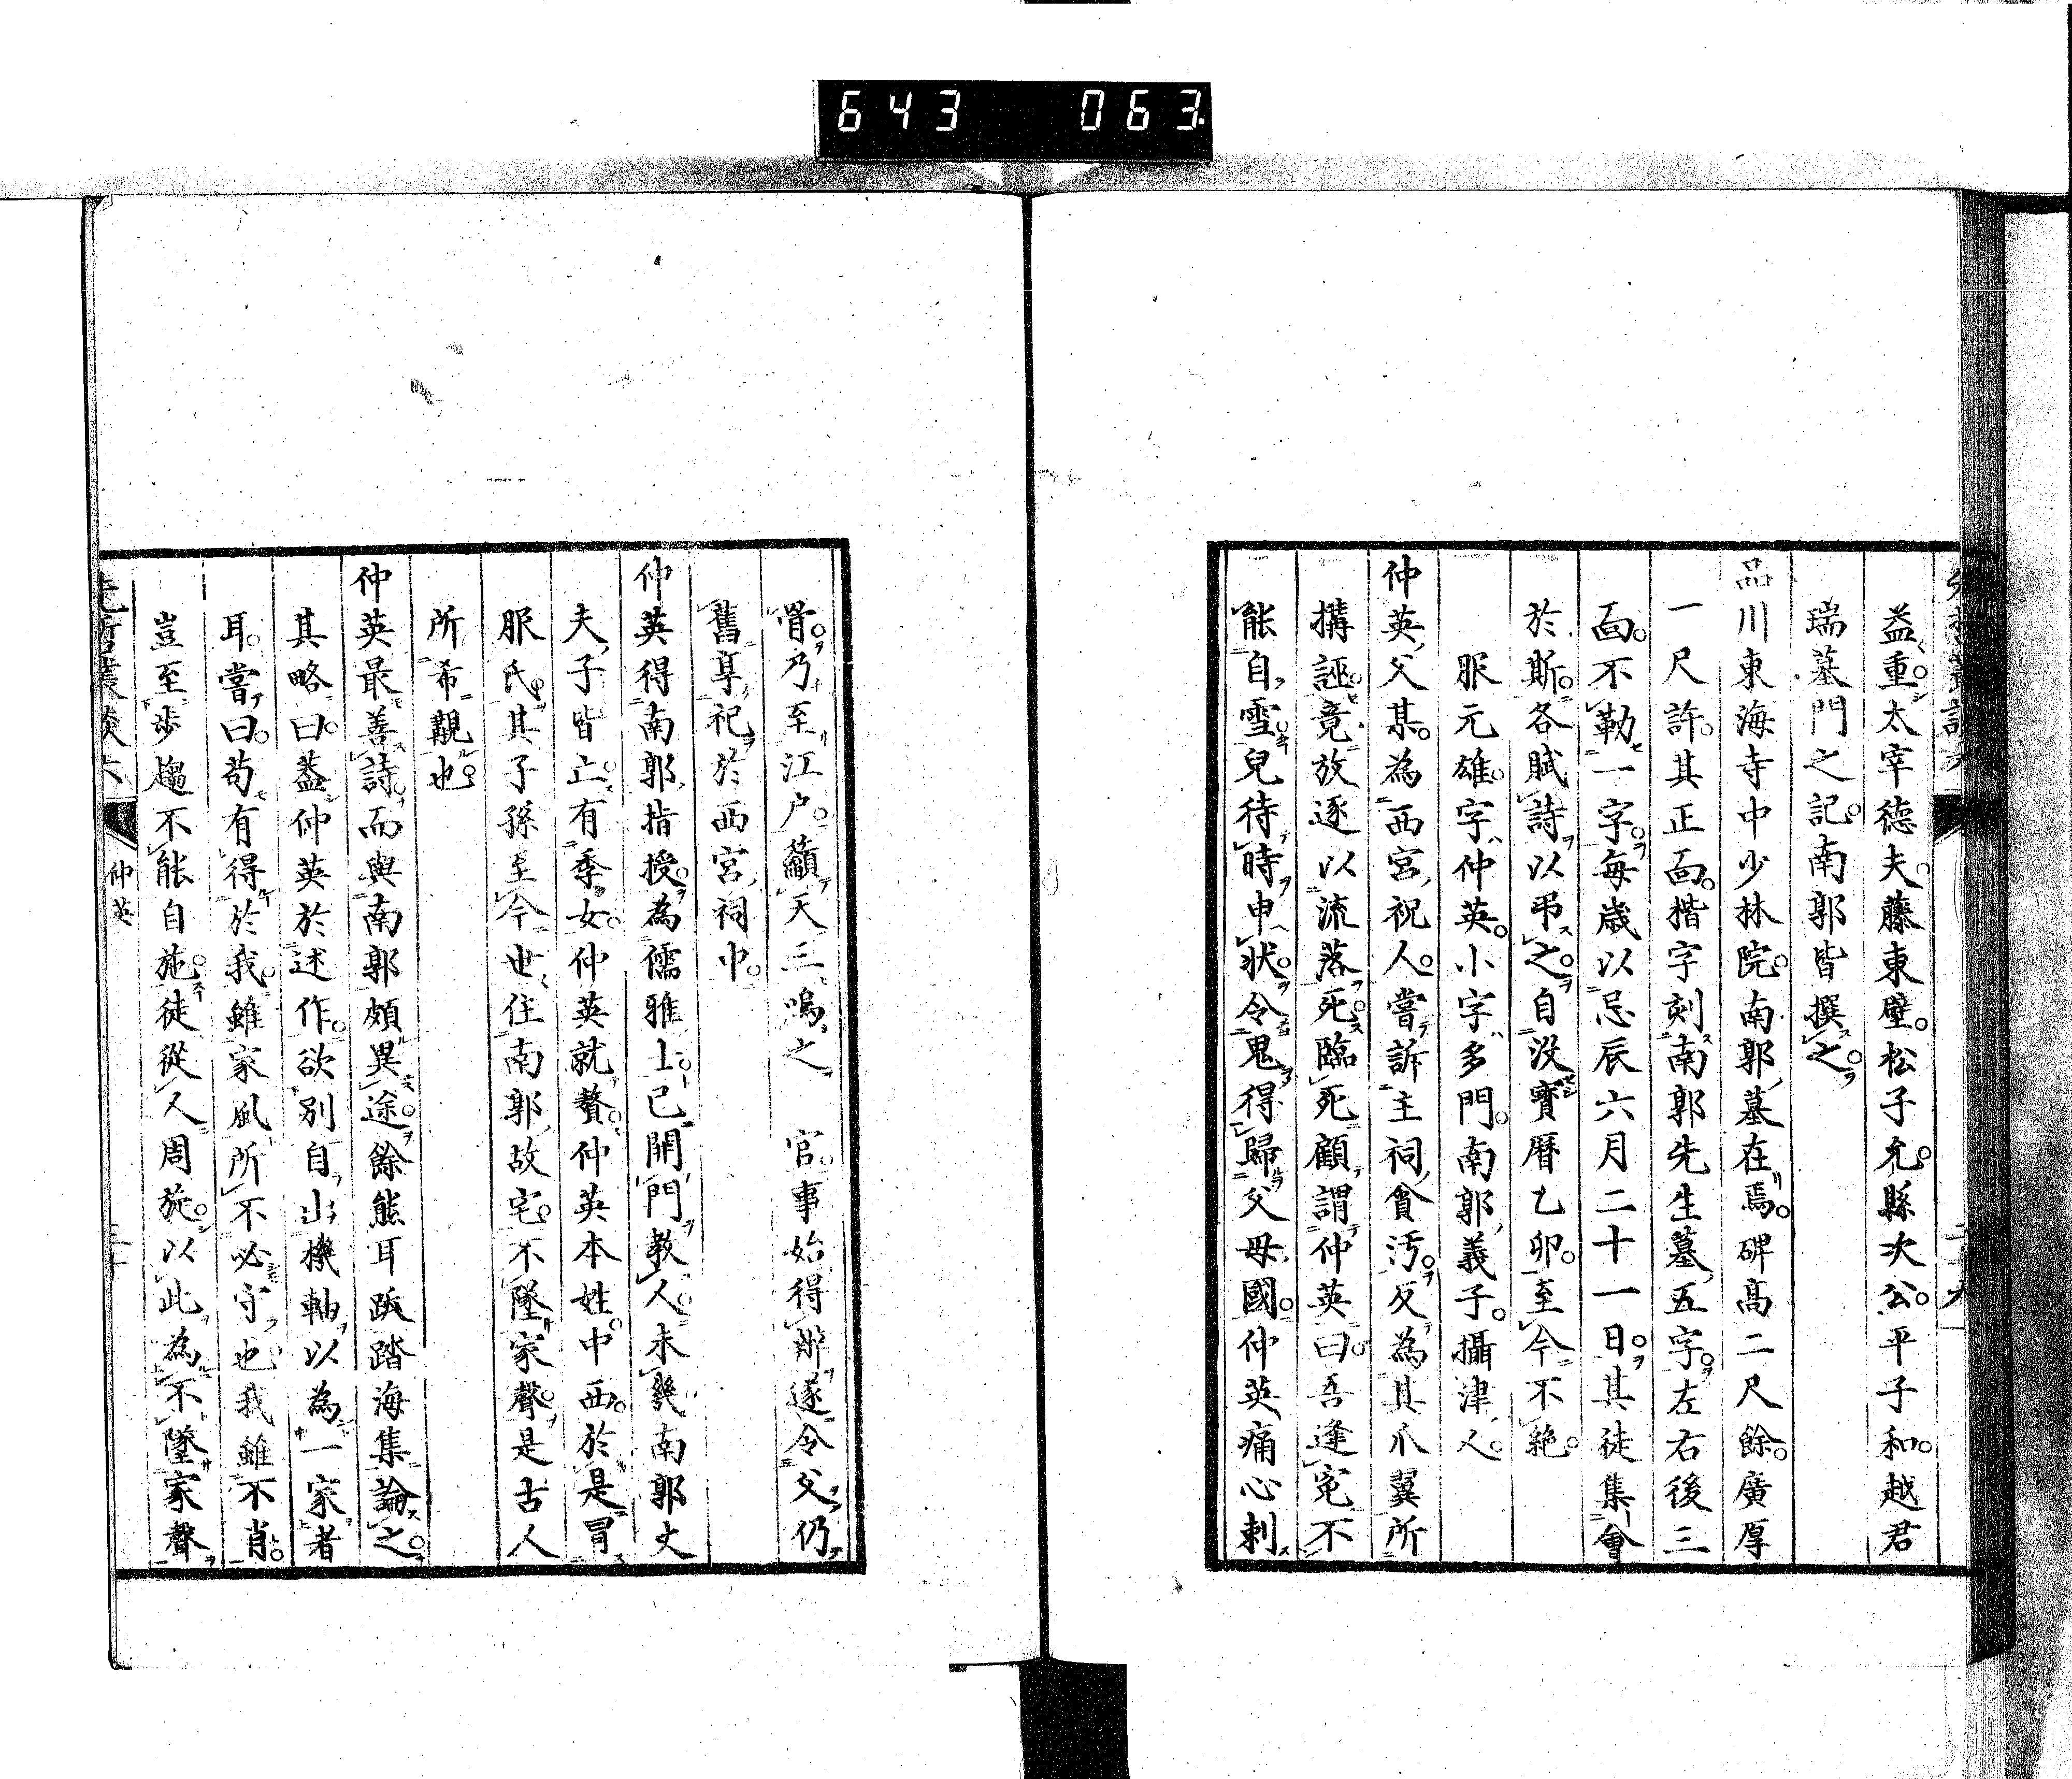 643 063
益重。太宰德夫。藤東壁。松子允。縣次公。平子和。越君
瑞墓門之記。南郭皆撰之。
品川東海寺中少林院。南郭墓在焉。碑高二尺餘。廣厚
一尺許。其正面。楷字刻南郭先生墓五字。左右後三
面。不勒一字。每歲以忌辰六月二十一日。其徒集會
於斯。各賦詩以弔之。自沒寶曆乙卯。至今不絕。
服元雄。字仲英。小字多門。南郭義子。攝津人。
仲英父某。為西宮祝人。嘗訴主祠貪污。反為其爪翼所
搆誣。竟放逐以流落死。臨死顧謂仲英曰。吾逢冤不
能自雪。兒待時申狀。令鬼得歸父母國。仲英痛心刺
骨。乃至江戶。籲天三鳴之 官。事始得辨。遂令父仍
舊享祀於西宮祠中。
仲英得南郭指授。為儒雅士。已開門教人。未幾南郭丈
夫子皆亡。有季女。仲英就贅。仲英本姓中西。於是冒
服氏。其子孫至今世住南郭故宅。不墜家聲。是古人
所希觀也。
仲英最善詩。而與南郭頗異途。餘熊耳跋踏海集論之。
其略曰。蓋仲英於述作。欲別自出機軸以為一家者
耳。嘗曰。苟有得於我。雖家風所不必守也。我雖不肖。
豈至步趨不能自施。徒從人周旋。以此為不墜家聲
先哲叢談六 仲英